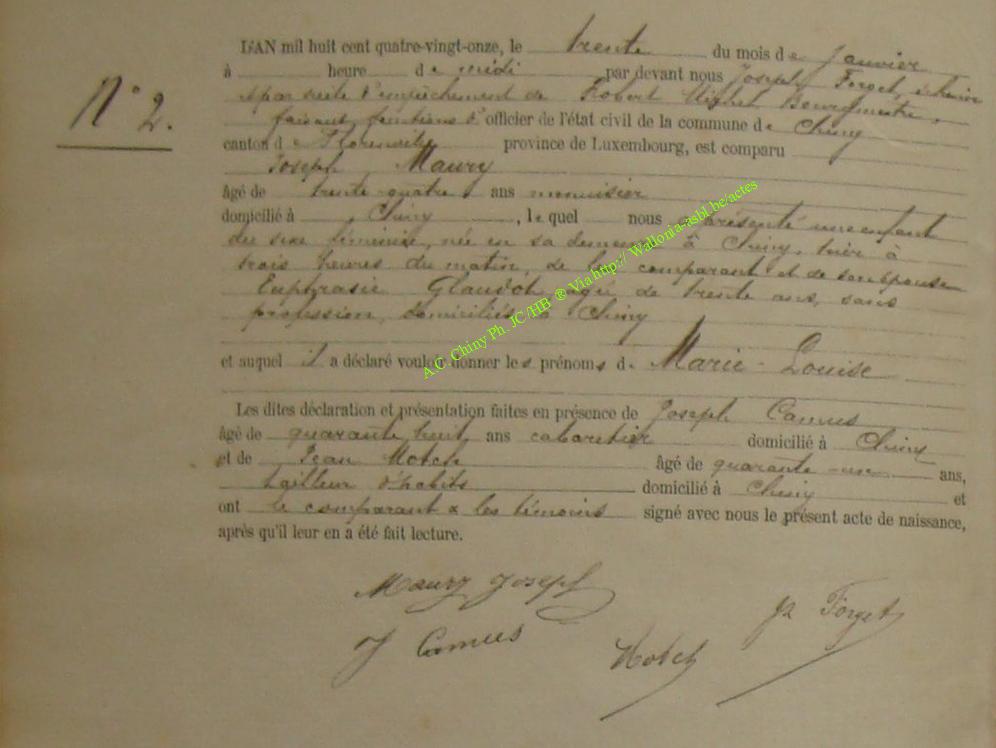 L'AN mil huit cent quatre-vingt-onze, le trente du mois de janvier
à heure de midi par devant nous Joseph Forget, échevin
N° 2.
et par suite d'empêchement de Robert Michel Bourgmestre,
faisant fonctions d'officier de l'état civil de la commune de Chiny
canton de Florenville province de Luxembourg, est comparu
Joseph Maury
âgé de trente-quatre ans menuisier
domicilié à Chiny, lequel nous a présenté une enfant
du sexe féminin, née en sa demeure à Chiny, hier à
trois heures du matin, de lui comparant et de son épouse
Euphrasie Glaudot, agée de trente ans, sans
profession, domiciliés à Chiny
et auquel il a déclaré vouloir donner les prénoms de Marie-Louise
Les dites déclaration et présentation faites en présence de Joseph Camus
âgé de quarante huit ans cabaretier domicilié à Chiny
et de Jean Motch âgé de quarante-un ans,
tailleur d'habits domicilié à Chiny et
ont le comparant & les témoins signé avec nous le présent acte de naissance,
après qu'il leur en a été fait lecture.
Maury Joseph
Jh Forget
J Camus
Motch
A.C. Chiny Ph. JC/HB ® Via http:// Wallonia-asbl.be/actes